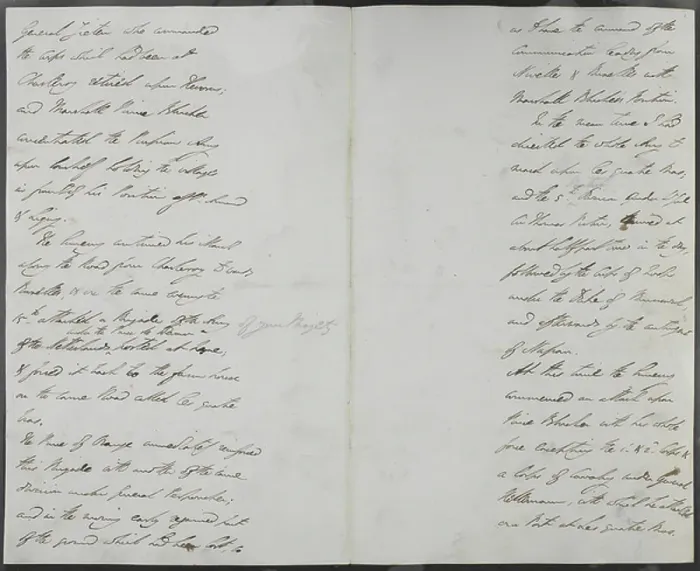 General Zieten who commanded
the Corps which had been at
Charleroy retired upon Fleurus;
and Marshall Prince Blucher
concentrated the Prussian Army
upon Sombref holding the villages
in front of his Position of St. Amand
& Ligny.
The Enemy continued his March
along the Road from Charleroy towards
Bruxelles, & on the same evening the
15th attacked a Brigade of the Army of your Majesty
under the Prince de Weimar
of the Netherlands posted at
& forced it back to the farm house
on the same Road called Les quatre
bras.
The Prince of Orange immediately reinforced
this Brigade with another of the same
division under General Perponcher;
and in the morning early regained part
of the ground which had been lost, so
as to have the command of the
Communication leading from
Nivelles & Bruxelles with
Marshall Bluchers Position.
In the mean time I had
directed the whole Army to
march upon Les quatre Bras,
and the 5th Division under Lt Genl
Sir Thomas Picton, arrived at
about half past two in the day,
followed by the Corps of Troops
under the Duke of Brunswick,
and afterwards by the contingent
of Nassau.
At this time the Enemy
commenced an attack upon
Prince Blucher with his whole
force excepting the 1st & 2d Corps &
a Corps of Cavalry under General
Kellermann, with which he attacked
our Post at Les quatre Bras.